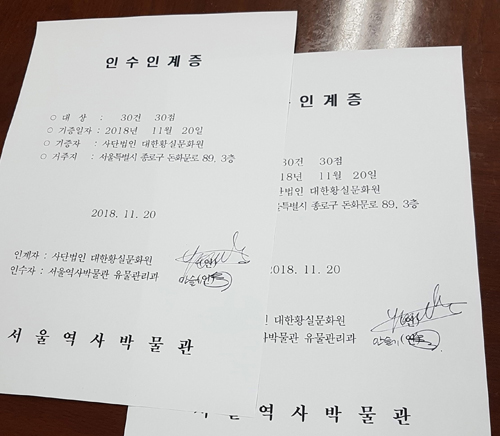 인수인계증
○ 대 상 : 30건 30점
○ 기증일자 : 2018년 11월 20일
○ 기증자 : 사단법인 대한황실문화원
○ 거주지 : 서울특별시 종로구 돈화문로 89, 3층
2018. 11. 20
인계자 : 사단법인 대한황실문화원 (인)
인수자 : 서울역사박물관 유물관리과
서울역사박물관
인계증
30건 30점
18년 11월 20일
단법인 대한황실문화원
울특별시 종로구 돈화문로 89, 3층
2018. 11. 20
인 대한황실문화원 (인)
사박물관 유물관리과
서울역사박물관